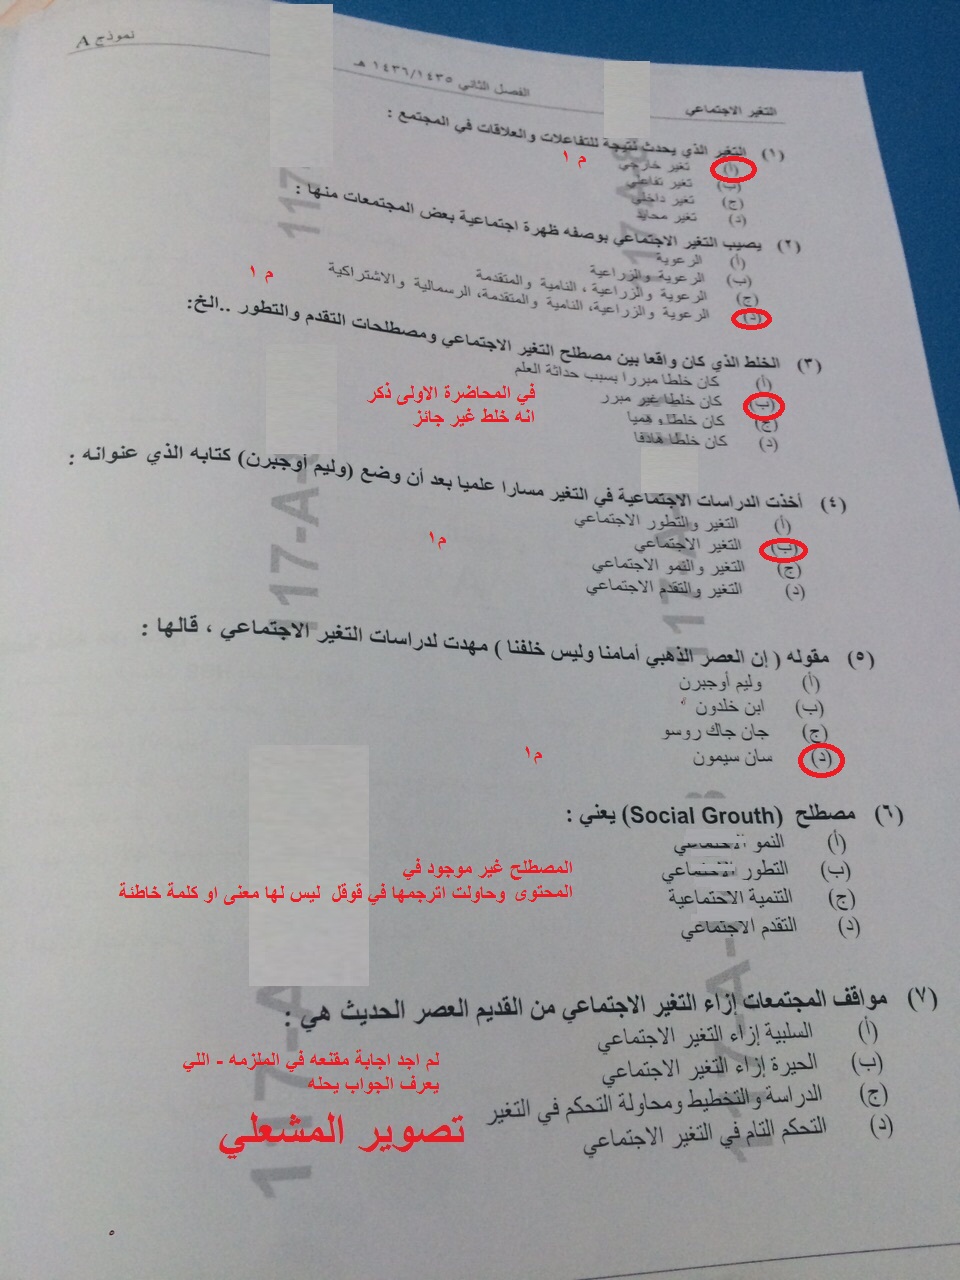 نموذج A
الفصل الثاني ١٤٣٦/١٤٣٥ هـ
التغير الاجتماعي
(١) التغير الذي يحدث نتيجة للتفاعلات والعلاقات في المجتمع :
م ١
(أ) تغير خارجي
(ب) تغير تفاعلي
(ج) تغير داخلي
(د) تغير محايد
(٢) يصيب التغير الاجتماعي بوصفه ظهرة اجتماعية بعض المجتمعات منها :
(أ) الرعوية
(ب) الرعوية والزراعية
(ج) الرعوية والزراعية ، النامية والمتقدمة
م ١
(د) الرعوية والزراعية، النامية والمتقدمة، الرسمالية والاشتراكية
(٣) الخلط الذي كان واقعا بين مصطلح التغير الاجتماعي ومصطلحات التقدم والتطور ..الخ:
(أ) كان خلطا مبررا بسبب حداثة العلم
(ب) كان خلطا غير مبرر
(ج) كان خلطا وهميا
(د) كان خلطا هادفا
في المحاضرة الاولى ذكر
انه خلط غير جائز
(٤) أخذت الدراسات الاجتماعية في التغير مسارا علميا بعد أن وضع (وليم أوجبرن) كتابه الذي عنوانه :
(أ) التغير والتطور الاجتماعي
(ب) التغير الاجتماعي
م١
(ج) التغير والنمو الاجتماعي
(د) التغير والتقدم الاجتماعي
(٥) مقوله ( إن العصر الذهبي أمامنا وليس خلفنا ) مهدت لدراسات التغير الاجتماعي ، قالها :
(أ) وليم أوجبرن
(ب) ابن خلدون
(ج) جان جاك روسو
(د) سان سيمون
م١
(٦) مصطلح (Social Grouth) يعني :
(أ) النمو الاجتماعي
(ب) التطور الاجتماعي
(ج) التنمية الاجتماعية
(د) التقدم الاجتماعي
المصطلح غير موجود في
المحتوى وحاولت اترجمها في قوقل ليس لها معنى او كلمة خاطئة
(٧) مواقف المجتمعات إزاء التغير الاجتماعي من القديم العصر الحديث هي :
(أ) السلبية إزاء التغير الاجتماعي
(ب) الحيرة إزاء التغير الاجتماعي
(ج) الدراسة والتخطيط ومحاولة التحكم في التغير
(د) التحكم التام في التغير الاجتماعي
لم اجد اجابة مقنعه في الملزمه - اللي
يعرف الجواب يحله
تصوير المشعلي
117
17 A-8
117-A-
117 A-
117-A
117-A-
٥